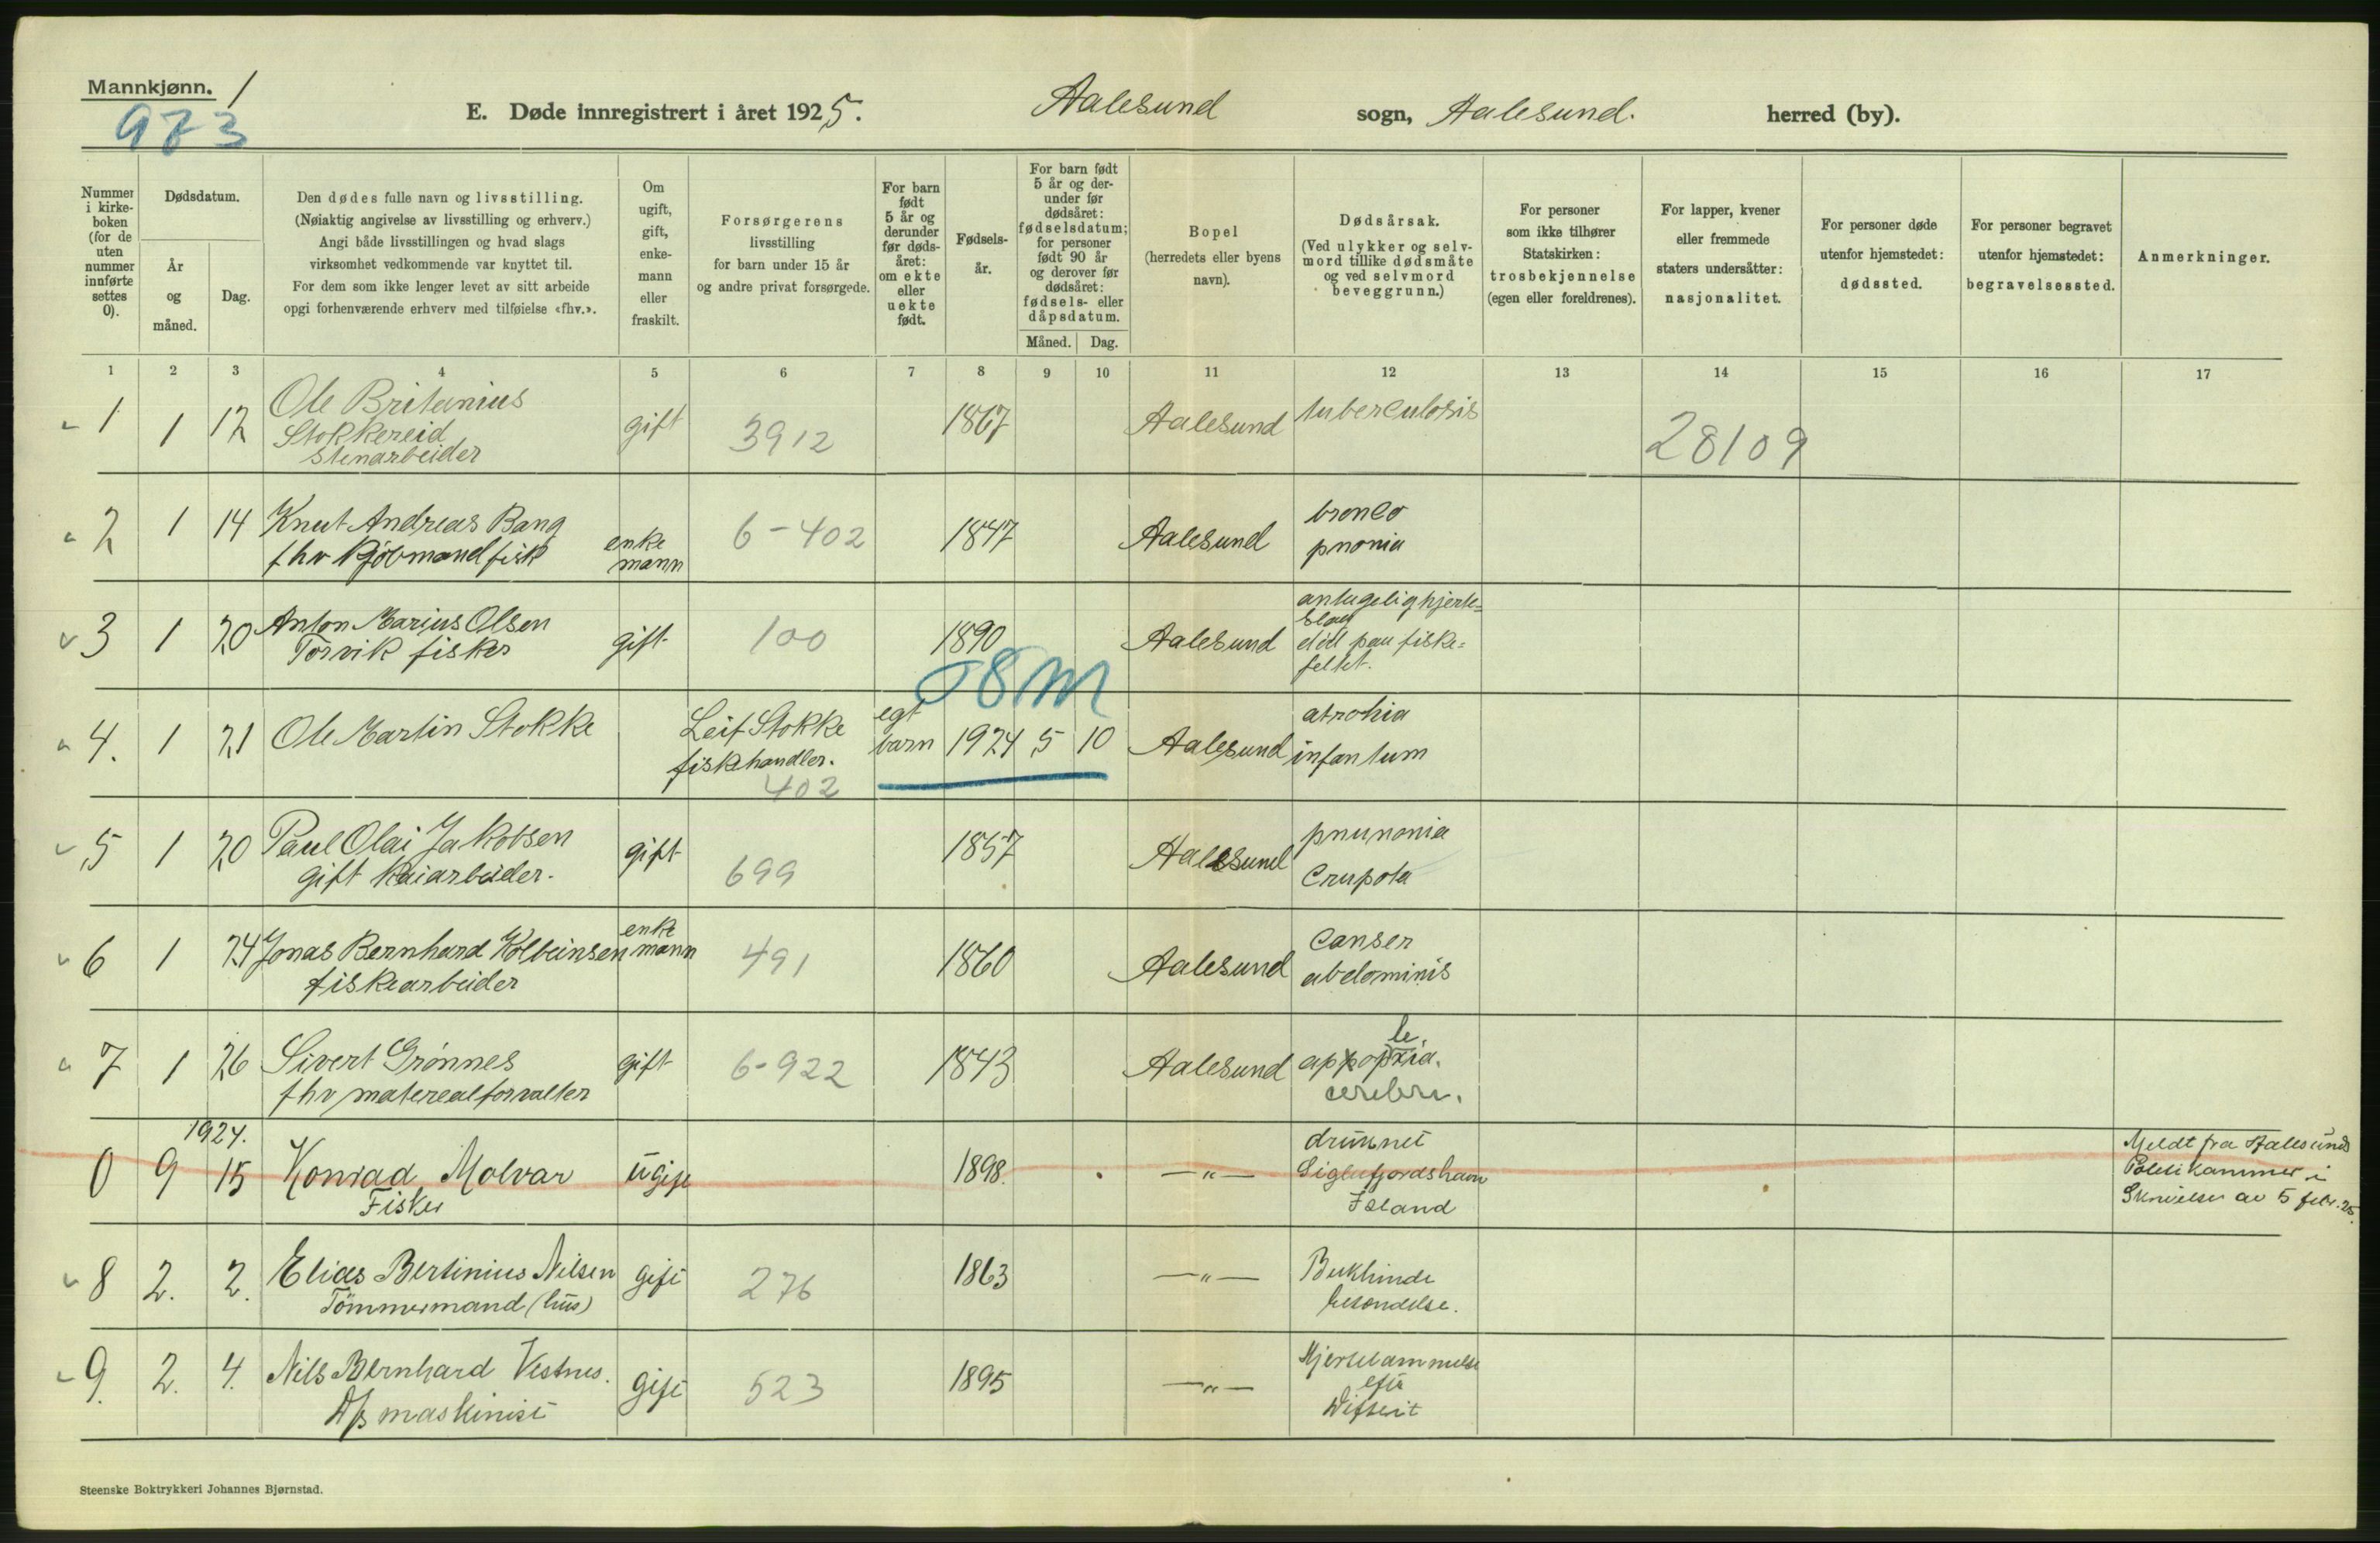 Mannkjønn. 1
973
E. Døde innregistrert i året 1925. Aalesund sogn, Aalesund. herred (by).
Nummer i kirke-boken (for de uten nummer innførte settes 0).
Dødsdatum.
År og måned.
Dag.
Den dødes fulle navn og livsstilling.
(Nøiaktig angivelse av livsstilling og erhverv.)
Angi både livsstillingen og hvad slags
virksomhet vedkommende var knyttet til.
For dem som ikke lenger levet av sitt arbeide
opgi forhenværende erhverv med tilføielse «fhv.».
Om ugift, gift, enke-mann eller fraskilt.
Forsørgerens
livsstilling
for barn under 15 år
og andre privat forsørgede.
For barn født 5 år og derunder før døds-året: om ekte eller uekte født.
Fødsels-år.
For barn født 5 år og der-under før dødsåret: fødselsdatum; for personer født 90 år og derover før dødsåret: fødsels- eller dåpsdatum.
Måned. Dag.
Bopel
(herredets eller byens
navn).
Dødsårsak.
(Ved ulykker og selv-
mord tillike dødsmåte
og ved selvmord
beveggrunn.)
For personer
som ikke tilhører
Statskirken:
trosbekjennelse
(egen eller foreldrenes).
For lapper, kvener
eller fremmede
staters undersåtter:
nasjonalitet.
For personer døde
utenfor hjemstedet:
dødssted.
For personer begravet
utenfor hjemstedet:
begravelsessted.
Anmerkninger.
1 2 3 4 5 6 7 8 9 10 11 12 13 14 15 16 17
1 1 12 Ole Britanius
Stokkereid
Stenarbeider
gift 3912 1867 Aalesund tuberculosis 28109
2 1 14 Knut Andreas Bang
fhv kjøbmand fisk
enke
mann
6-402 1847 Aalesund bronco
pnonia
3 1 20 Anton Marius Olsen
Torvik fisker
gift 100 1890 Aalesund antagelig hjerte=
slag
død paa fiske=
feltet.
08m
4. 1 21 Ole Martin Stokke
Leif Stokke
fiskehandler.
402
egt
barn 1924 5 10 Aalesund atrohia
infantum
5 1 20 Paul Olai Jakobsen
gift kaiarbeider.
gift 699 1857 Aalesund pnunonia
Crupota
6 1 24 Jonas Bernhard Kolbeinsen
fiskearbeider
enke
mann
491 1860 Aalesund Canser
abdominis
7 1 26 Sivert Grønnes
fhv materealforvalter
gift 6-922 1843 Aalesund le
appopxia.
cerebri.
1924.
0 9 15 Konrad Molvar
Fisker
ugift 1898. —"— druknet
Siglufjordshavn
Island
Meldt fra Aalesunds
Politikammer i
Skrivelse av 5 febr. 25.
8 2. 2. Elias Bertinius Nilsen
Tømmermand (hus)
gift 276 1863 —"— Bukhinde
betendelse.
9. 2. 4. Nils Bernhard Vestnes.
D/s maskinist
gift 523 1895 —"— Hjertelammelse
efter
Difterit
Steenske Boktrykkeri Johannes Bjørnstad.